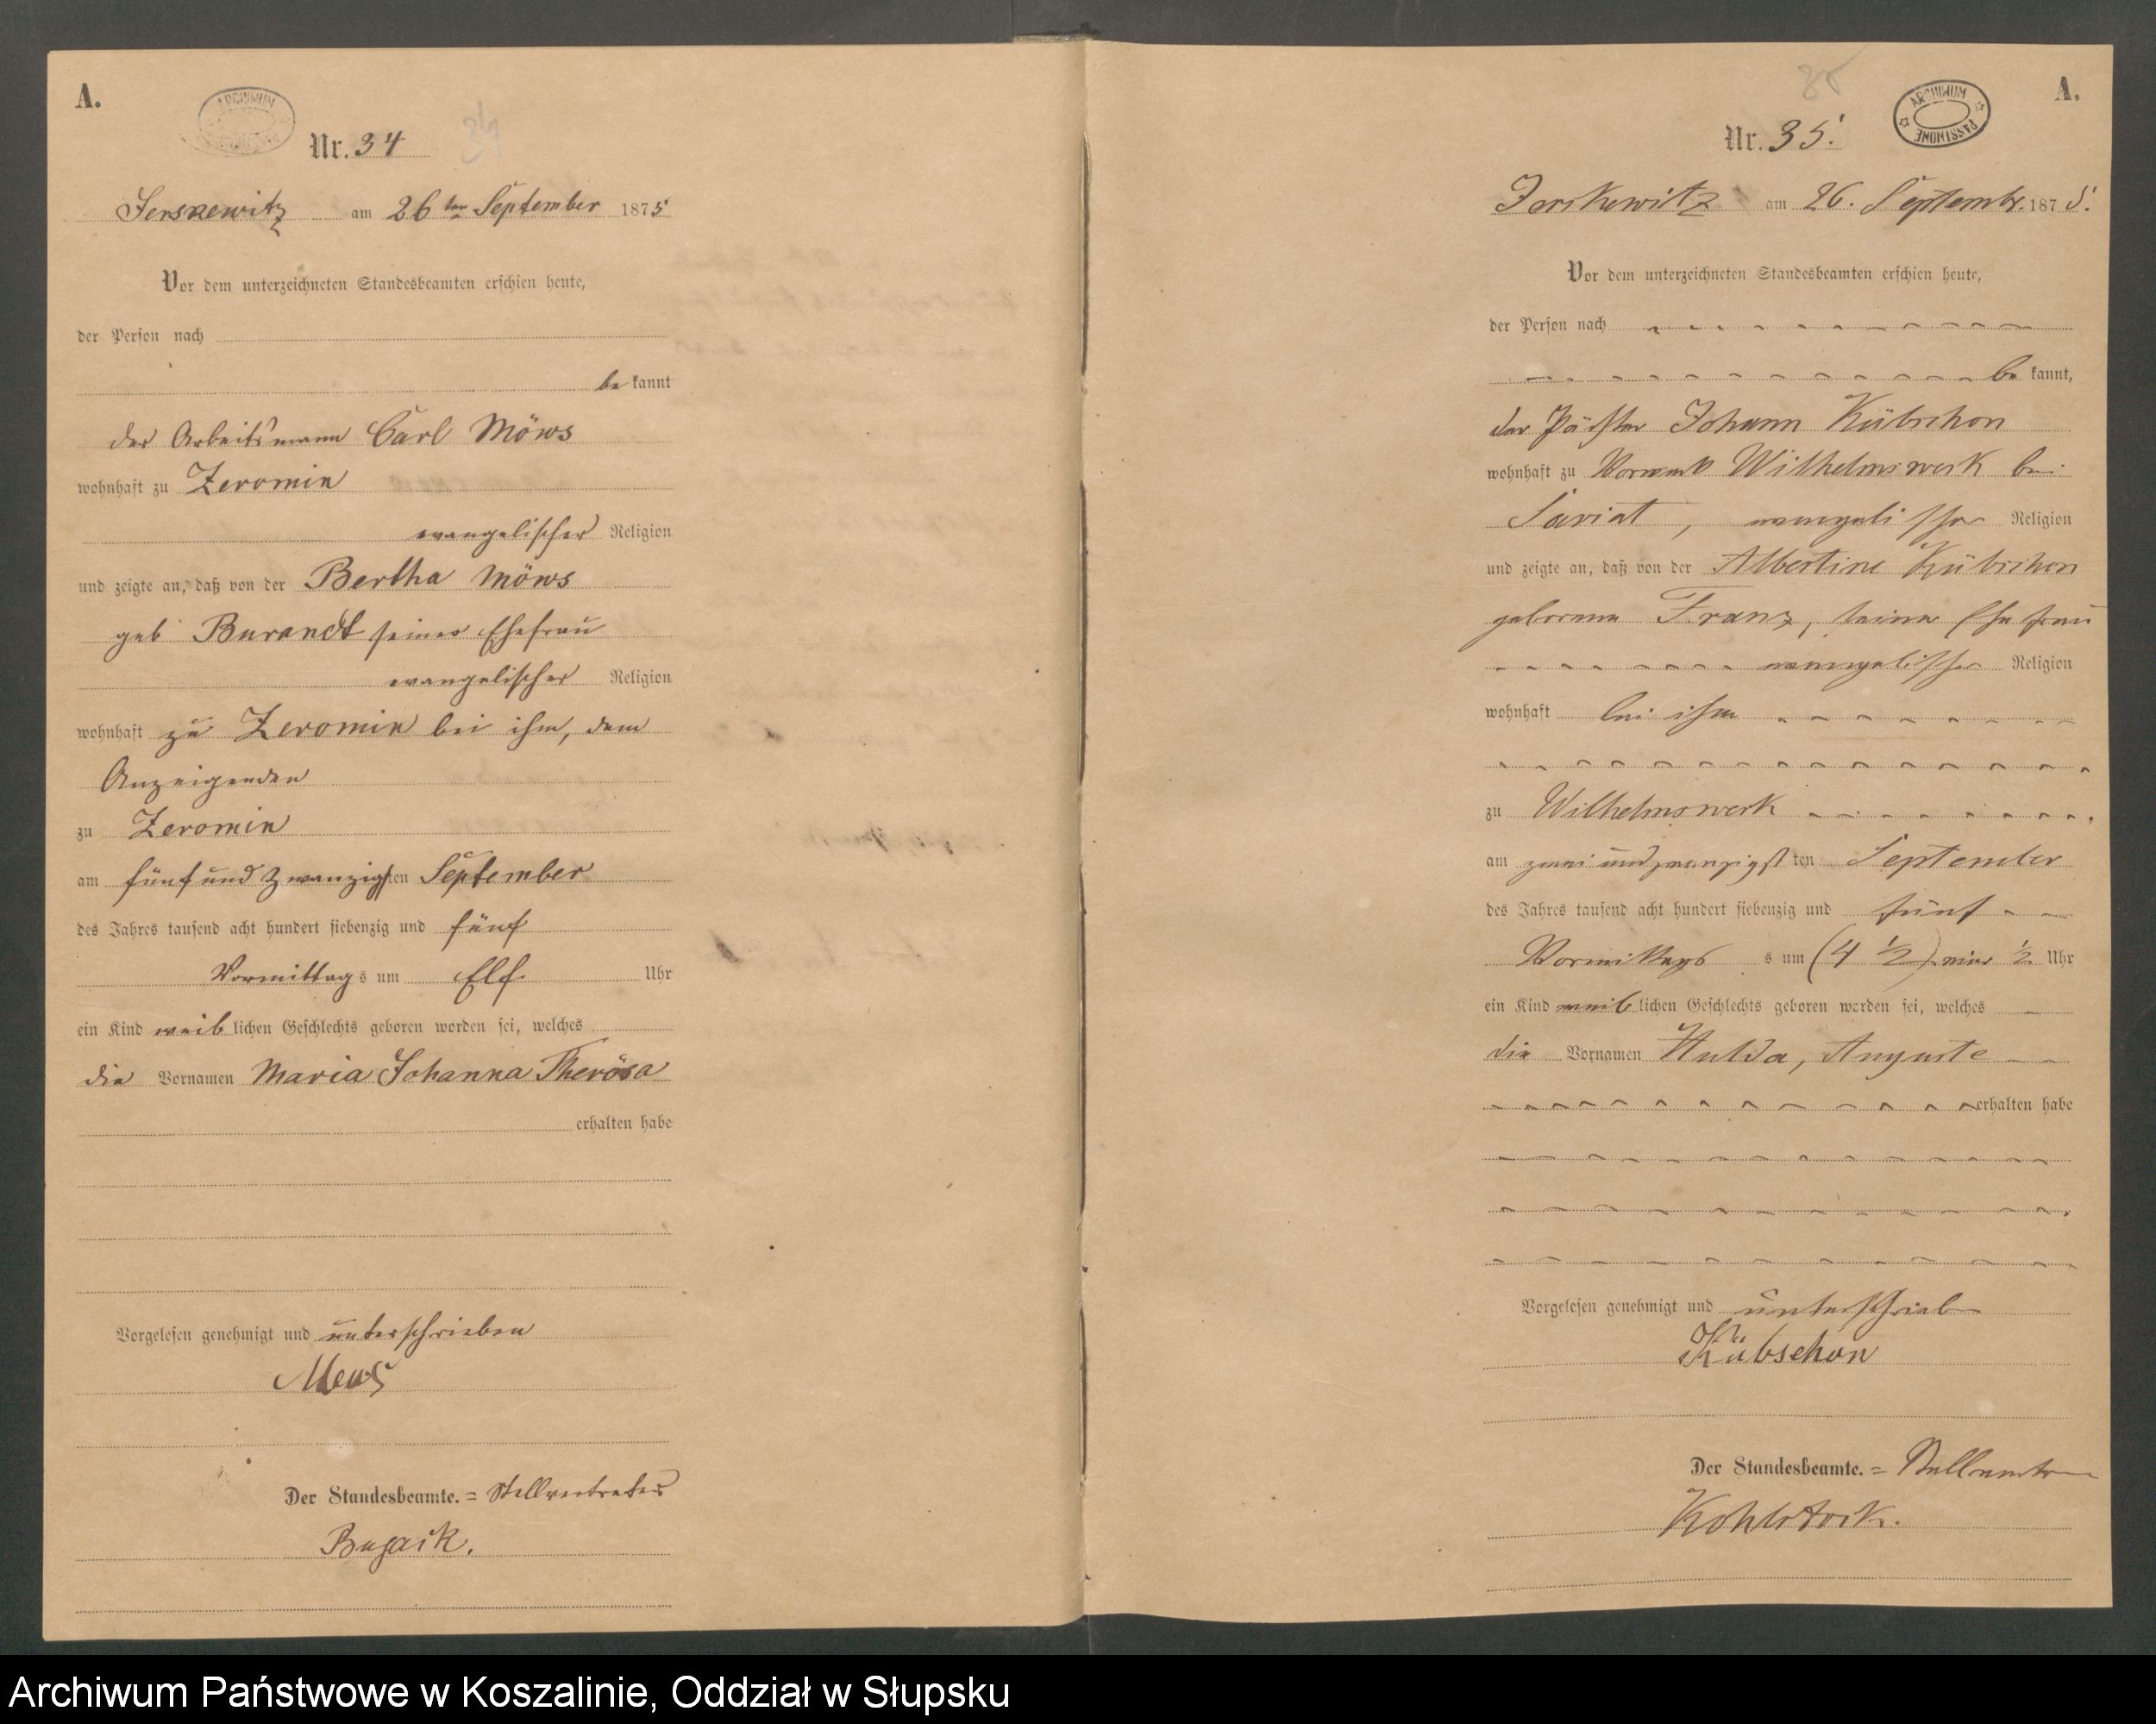 A.
ARCHIWUM
Nr. 34
34
Jerskewitz am 26ten September 1875
Vor dem unterzeichneten Standesbeamten erschien heute,
der Person nach
be kannt
der Arbeitsmann Carl Möws
wohnhaft zu Zeromin
evangelischer Religion
und zeigte an, daß von der Bertha Möws
geb Burandt seiner Ehefrau
evangelischer Religion
wohnhaft zu Zeromin bei ihm, dem
Anzeigenden
zu Zeromin
am fünf und zwanzigsten September
des Jahres tausend acht hundert siebenzig und fünf
Vormittag s um Elf Uhr
ein Kind weib lichen Geschlechts geboren worden sei, welches
die Vornamen Maria Johanna Therösa
erhalten habe
Vorgelesen genehmigt und unterschrieben
Mews
Der Standesbeamte. = Stellvertreter
A.
ARCHIWUM PAŃSTWOWE
Nr. 35.
Jerskewitz am 26. Septembr. 1875.
Vor dem unterzeichneten Standesbeamten erschien heute,
der Person nach
be kannt,
der Johann Kübschon
wohnhaft zu Vorwerk Wilhelmswerk bei
evangelischer Religion
und zeigte an, daß von der Albertine Kübschon
geborene Franz, seine Ehefrau
evangelischer Religion
wohnhaft bei ihm
zu Wilhelmswerk
am zwei und zwanzigsten September
des Jahres tausend acht hundert siebenzig und fünf
Vormittags s um (4 1/2) vier 1/2 Uhr
ein Kind weib lichen Geschlechts geboren worden sei, welches
die Vornamen Hulda, Auguste
erhalten habe
Vorgelesen genehmigt und unterschrieb
Kübschon
Der Standesbeamte. = Stellvertr
Kohlstock.
Archiwum Państwowe w Koszalinie, Oddział w Słupsku